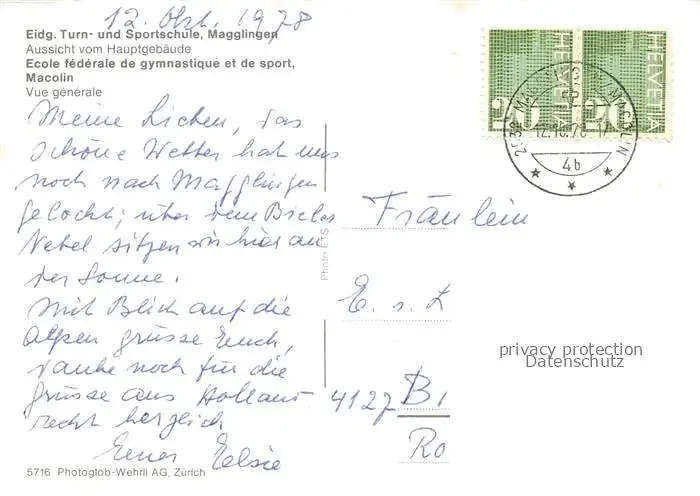 12. Okt. 1978
Eidg. Turn- und Sportschule, Magglingen
Aussicht vom Hauptgebäude
Ecole fédérale de gymnastique et de sport,
Macolin
Vue générale
Meine Lieben, das
schöne Wetter hat uns
noch nach Magglingen
gelockt; über dem Bieler
Nebel sitzen wir hier an
der Sonne.
Mit Blick auf die
Alpen grüsse Euch,
danke noch für die
Grüsse aus Holland
recht herzlich
Eure Elsie
5716 Photoglob-Wehrli AG, Zürich
Photo ETS
HELVETIA
20
HELVETIA
20
2532 MAGGLINGEN/MACOLIN
12.10.78-17
4b
Fräulein
E. s. L
4127 Bi
Ro
privacy protection
Datenschutz